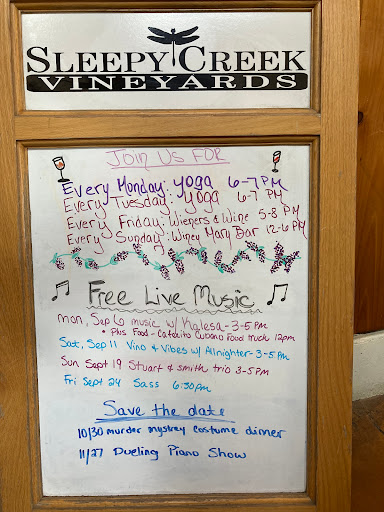 SLEEPY CREEK
VINEYARDS
Join Us For
Every Monday: yoga 6-7 PM
Every Tuesday: yoga 6-7 PM
Every Friday: Wieners & Wine 5-8 PM
Every Sunday: Winey Mary Bar 12-6 PM
Free Live Music
mon, Sep 6 music w/ Kalesa - 3-5 PM
+ Plus Food - Catalito Cubano Food truck 12pm
Sat, Sep 11 Vino & Vibes w/ Allnighter - 3-5 PM
Sun Sept 19 Stuart & smith trio 3-5 PM
Fri Sept 24 Sass 6:30 PM
Save the date
10/30 murder mystrey costume dinner
11/27 Dueling Piano Show